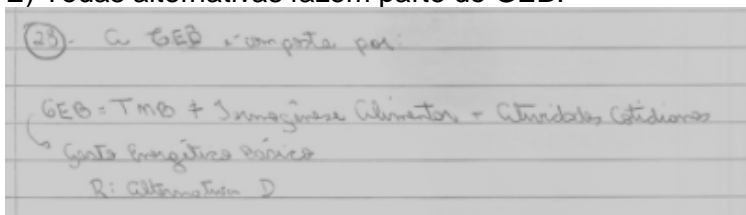 E) Todas alternativas fazem parte do GEB.
23). A GEB é composta por:
GEB = TMB + Termogênese Alimentar + Atividades Cotidianas
Gasto Energético Básico
R: Alternativa D